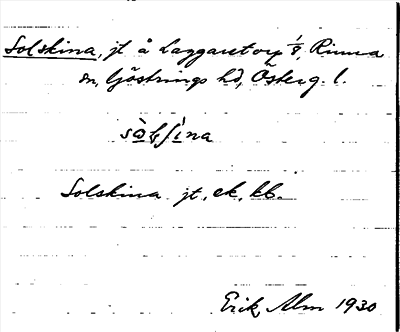 Solskina, jt å Laggaretorp 1/8, Rinna
sn, Göstrings hd, Österg. l.
sòlʃìna
Solskina jt, ek. kb.
Erik Alm 1930